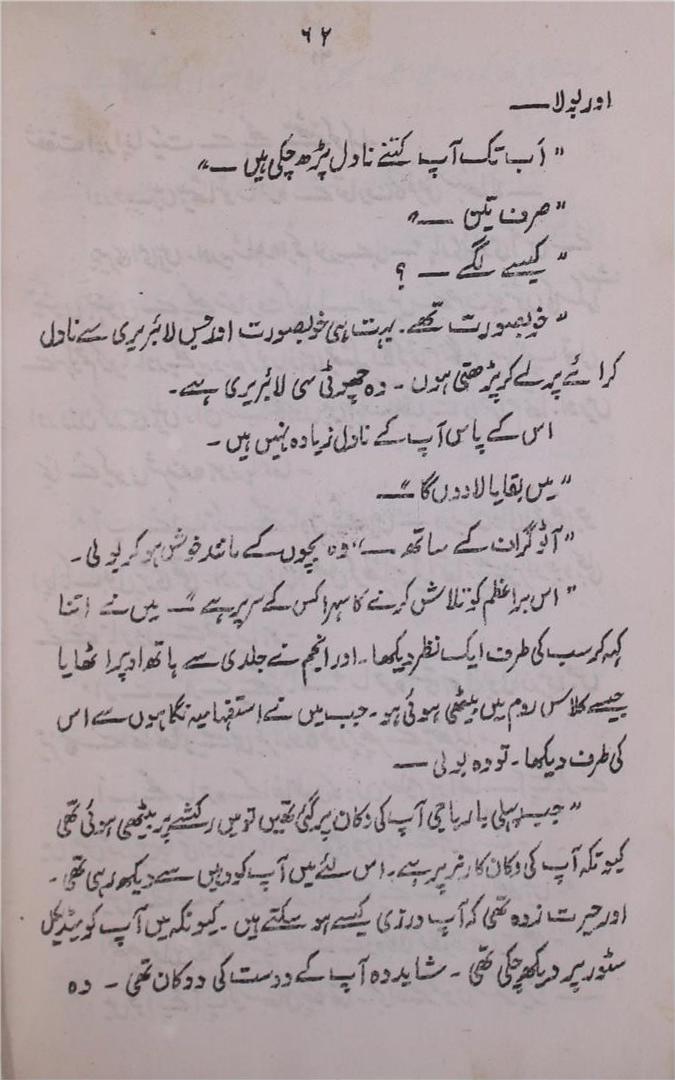 ۶۲
اور بولا —
" اَب تک آپ کتنے ناول پڑھ چکی ہیں —"
" صرف تین —"
" کیسے لگے — ؟
" خوبصورت تھے۔ بہت ہی خوبصورت اور جس لائبریری سے ناول
کرائے پر لے کر پڑھتی ہوں۔ وہ چھوٹی سی لائبریری ہے۔
اس کے پاس آپ کے ناول زیادہ نہیں ہیں۔
" میں بقایا لا دوں گا "—
" آٹو گراف کے ساتھ —" وہ بچوں کے مانند خوش ہو کر بولی۔
" اس براعظم کو تلاش کرنے کا سہرا کس کے سر پر ہے "— میں نے اتنا
کہہ کر سب کی طرف ایک نظر دیکھا۔ اور انجم نے جلدی سے ہاتھ اوپر اٹھایا
جیسے کلاس روم میں بیٹھی ہوئی ہو۔ جب میں نے استفہامیہ نگاہوں سے اس
کی طرف دیکھا۔ تو وہ بولی —
" جب پہلی بار باجی آپ کی دکان پر گئی تھیں تو میں رکشے پر بیٹھی ہوئی تھی
کیونکہ آپ کی دکان کارنر پر ہے۔ اس لئے میں آپ کو وہیں سے دیکھ رہی تھی۔
اور حیرت زدہ تھی کہ آپ درزی کیسے ہو سکتے ہیں۔ کیونکہ میں آپ کو میڈیکل
سٹور پر دیکھ چکی تھی۔ شاید وہ آپ کے دوست کی دوکان تھی۔ وہ